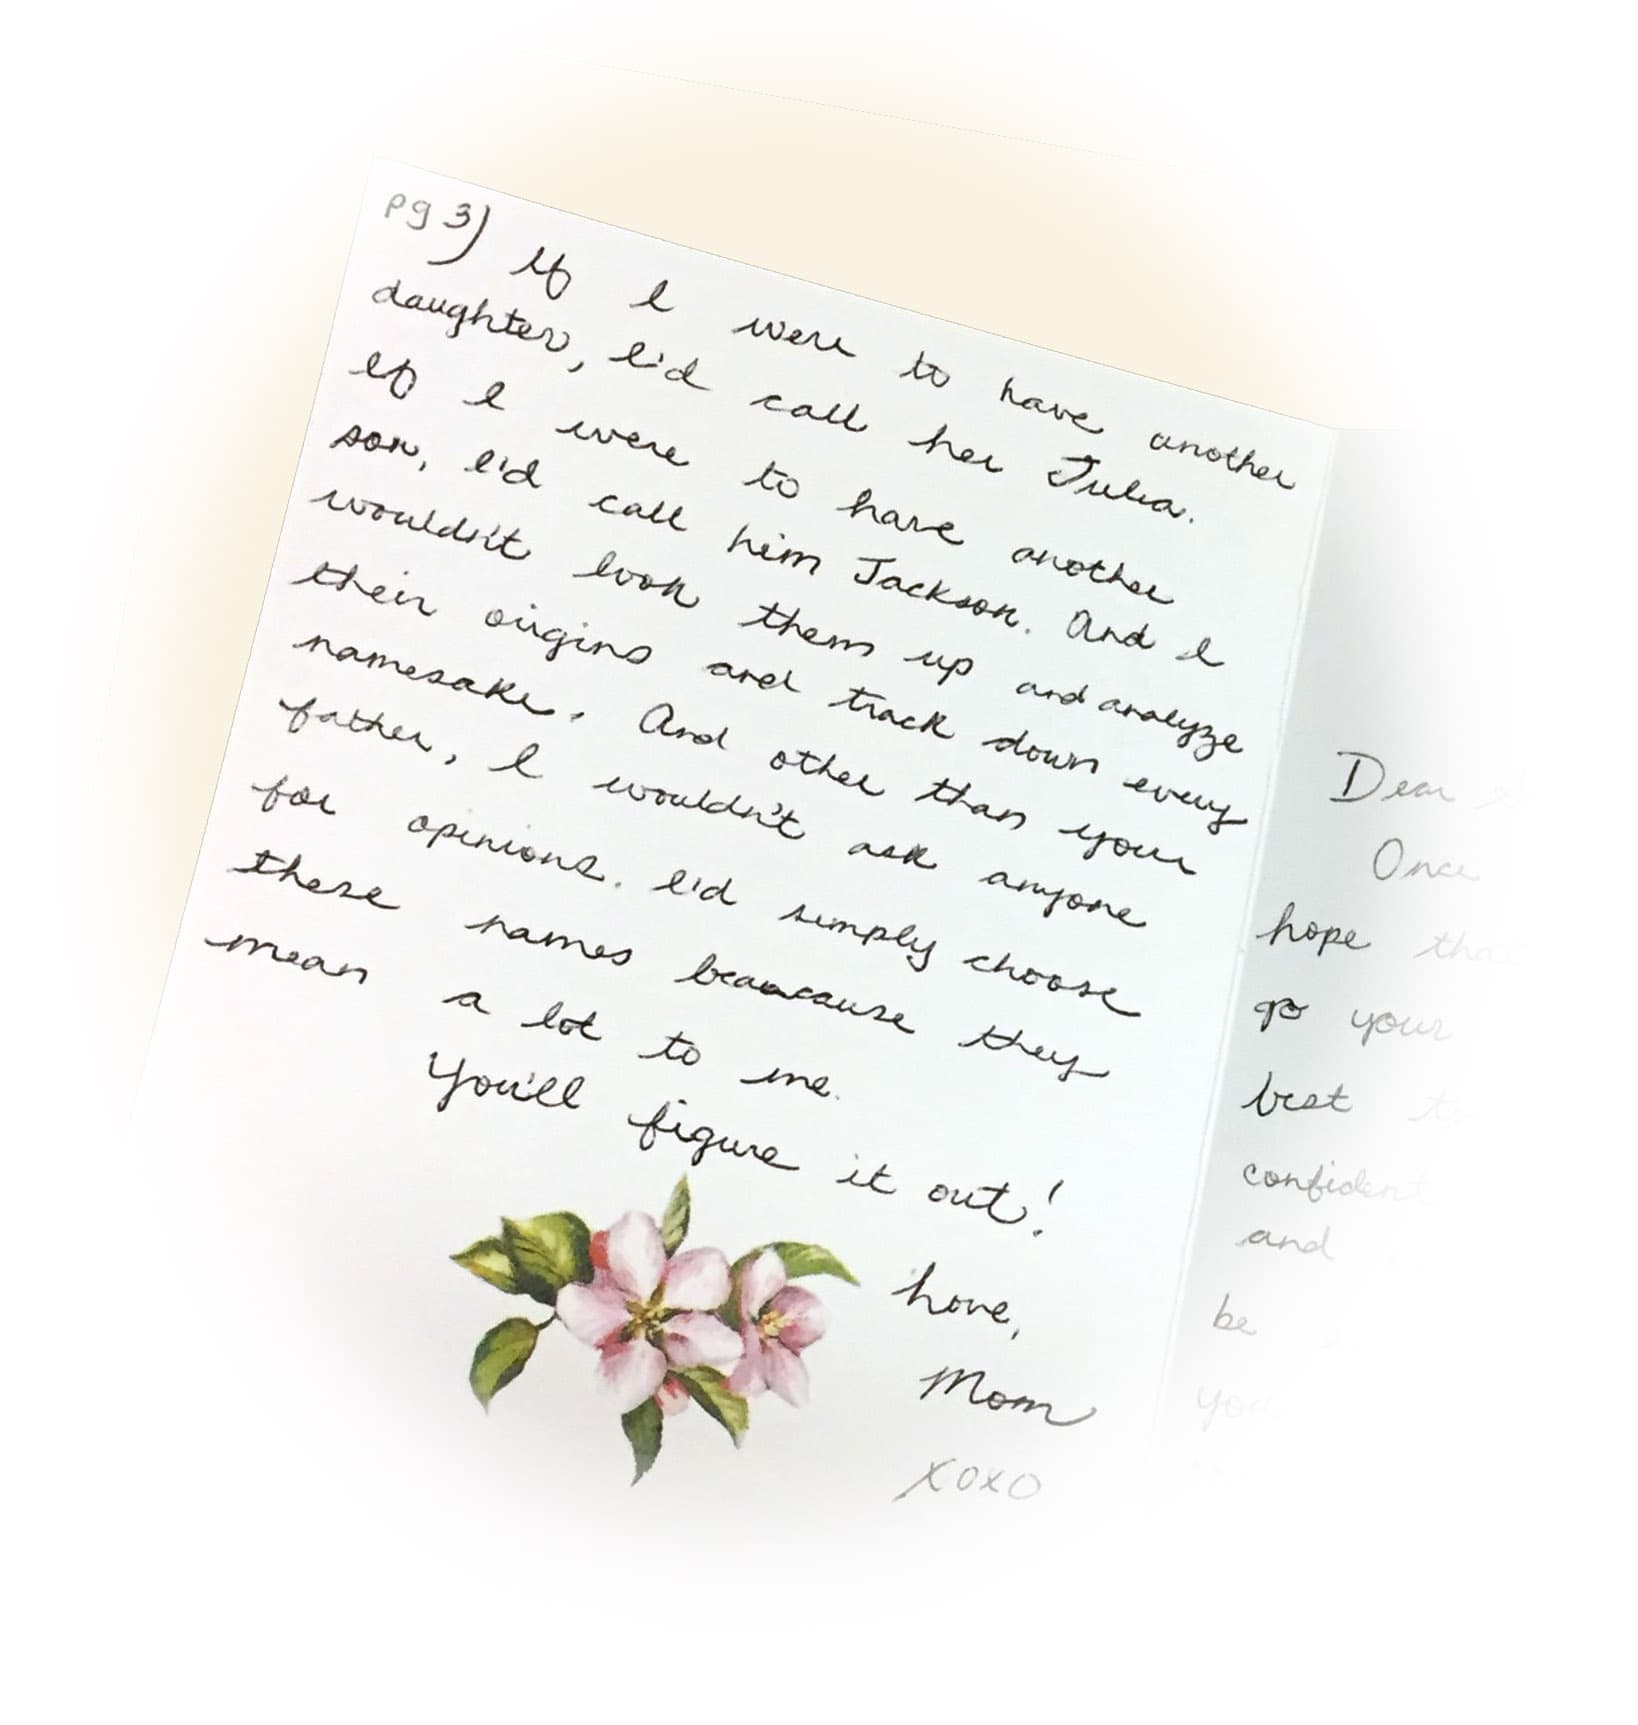 pg 3) If I were to have another
daughter, I'd call her Julia.
If I were to have another
son, I'd call him Jackson. And I
wouldn't look them up and analyze
their origins and track down every
namesake. And other than your
father, I wouldn't ask anyone
for opinions. I'd simply choose
these names beaucause they
mean a lot to me.
You'll figure it out!
Love,
Mom
XOXO
Dear
Once
hope that
go your
best to
confident
and
be
you